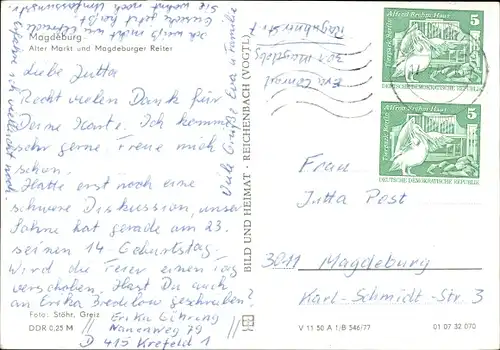 Magdeburg
Alter Markt und Magdeburger Reiter
Liebe Jutta
Recht vielen Dank für
Deine Karte. Ich komme
sehr gerne. Freue mich
schon.
Hatte erst noch eine
schwere Diskussion, unser
Sohne hat gerade am 23.
seinen 14. Geburtstag.
Wird die Feier einen Tag
verschoben. Hast Du auch
an Erika Bredelow geschrieben?
Erika Gührung
79
D 415 Krefeld 1
Foto: Stöhr, Greiz
DDR 0,25 M
Ich weiß nicht
Sie noch
Viele Grüße Eva u Familie
BILD UND HEIMAT · REICHENBACH (VOGTL)
Eva
301 Magdeb
Alfred Brehm Haus
Tierpark Berlin
5
DEUTSCHE DEMOKRATISCHE REPUBLIK
Alfred Brehm Haus
Tierpark Berlin
5
DEUTSCHE DEMOKRATISCHE REPUBLIK
Frau
Jutta Post
3011 Magdeburg
Karl-Schmidt-Str. 3
V 11 50 A 1/B 546/77
01 07 32 070